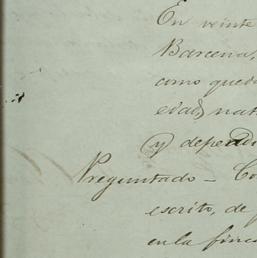 En veinte
Barcena,
como qued
edad, nat
y depend
Preguntado - Co
escrito, de
en la finc